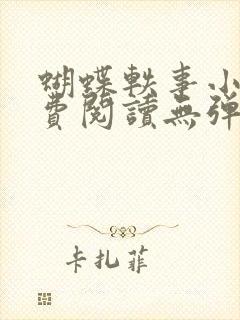 蝴蝶軼事小
費閱讀無彈
卡扎菲